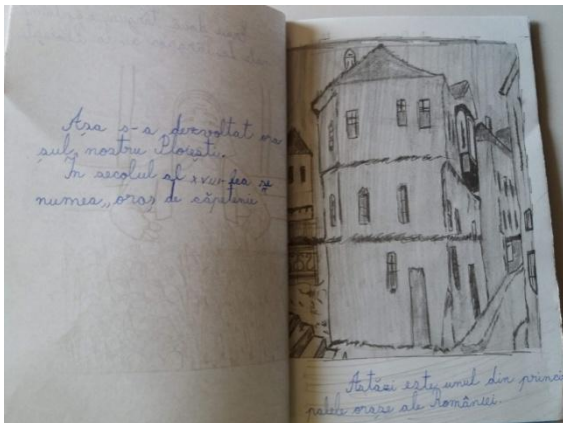 Așa s-a dezvoltat ora
șul nostru Ploiești.
În secolul al XVII-lea se
numea „oraș de căpetenii
Astăzi este unul din princi
palele orașe ale României.